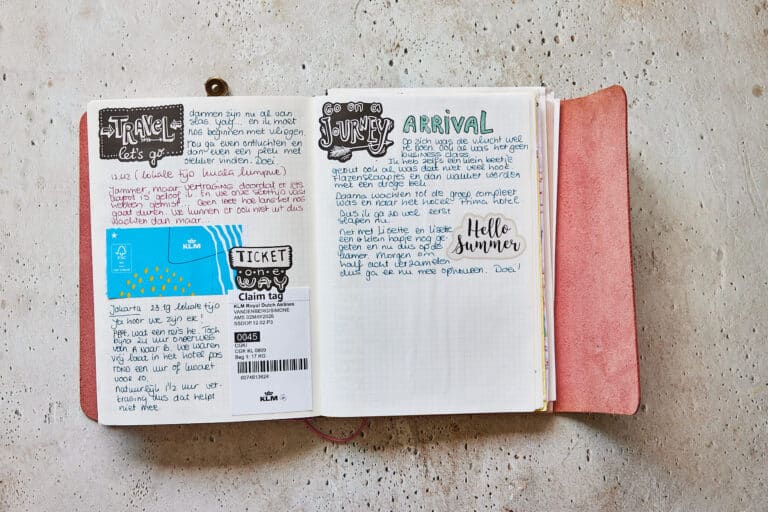 TRAVEL
let's go
dammen zijn nu al van
slag
en ik moet
nog beginnen met vliegen.
nou ga even ontluchten en
dan even een plek met
stekker vinden. Doei
(lokale tijd Kuala Lumpur)
Jammer, maar vertraging doordat er iets
kapot is geloof ik. En we onze slottijd vast
hebben gemist... Geen idee hoe lang het nog
gaat duren. We kunnen er ook niet uit dus
wachten dan maar
FSC
KLM
TICKET
one
WAY
Claim tag
KLM Royal Dutch Airlines
VANDENBERG/SIMONE
0045
CGK KL 0809
Bag 1: 17 KG
KLM
Jakarta 23.19 lokale tijd
Ja hoor we zijn er!
wat een reis he. Toch
bijna 20 uur onderweg
van A naar B. We waren
vrij laat in het hotel pas
rond een uur of kwart
voor 10.
Natuurlijk 1½ uur ver-
traging dus dat helpt
niet mee.
Go on a
JOURNEY
ARRIVAL
Op zich was de vlucht wel
te doen. Ook al was het geen
business class.
Ik heb zelfs een klein beetje
geout ook al was dat niet veel hoor
Hazenslaapjes en dan wakker worden
met een droge bek
Daarna wachten tot de groep compleet
was en naar het hotel: Prima hotel
Dus ik ga zo wel eerst
slapen nu.
Net met Lisette en Lisette
een klein hapje nog ge-
geten en nu dus op de
kamer. Morgen om
half acht verzamelen
dus ga er nu mee ophouden. Doei!
Hello
Summer